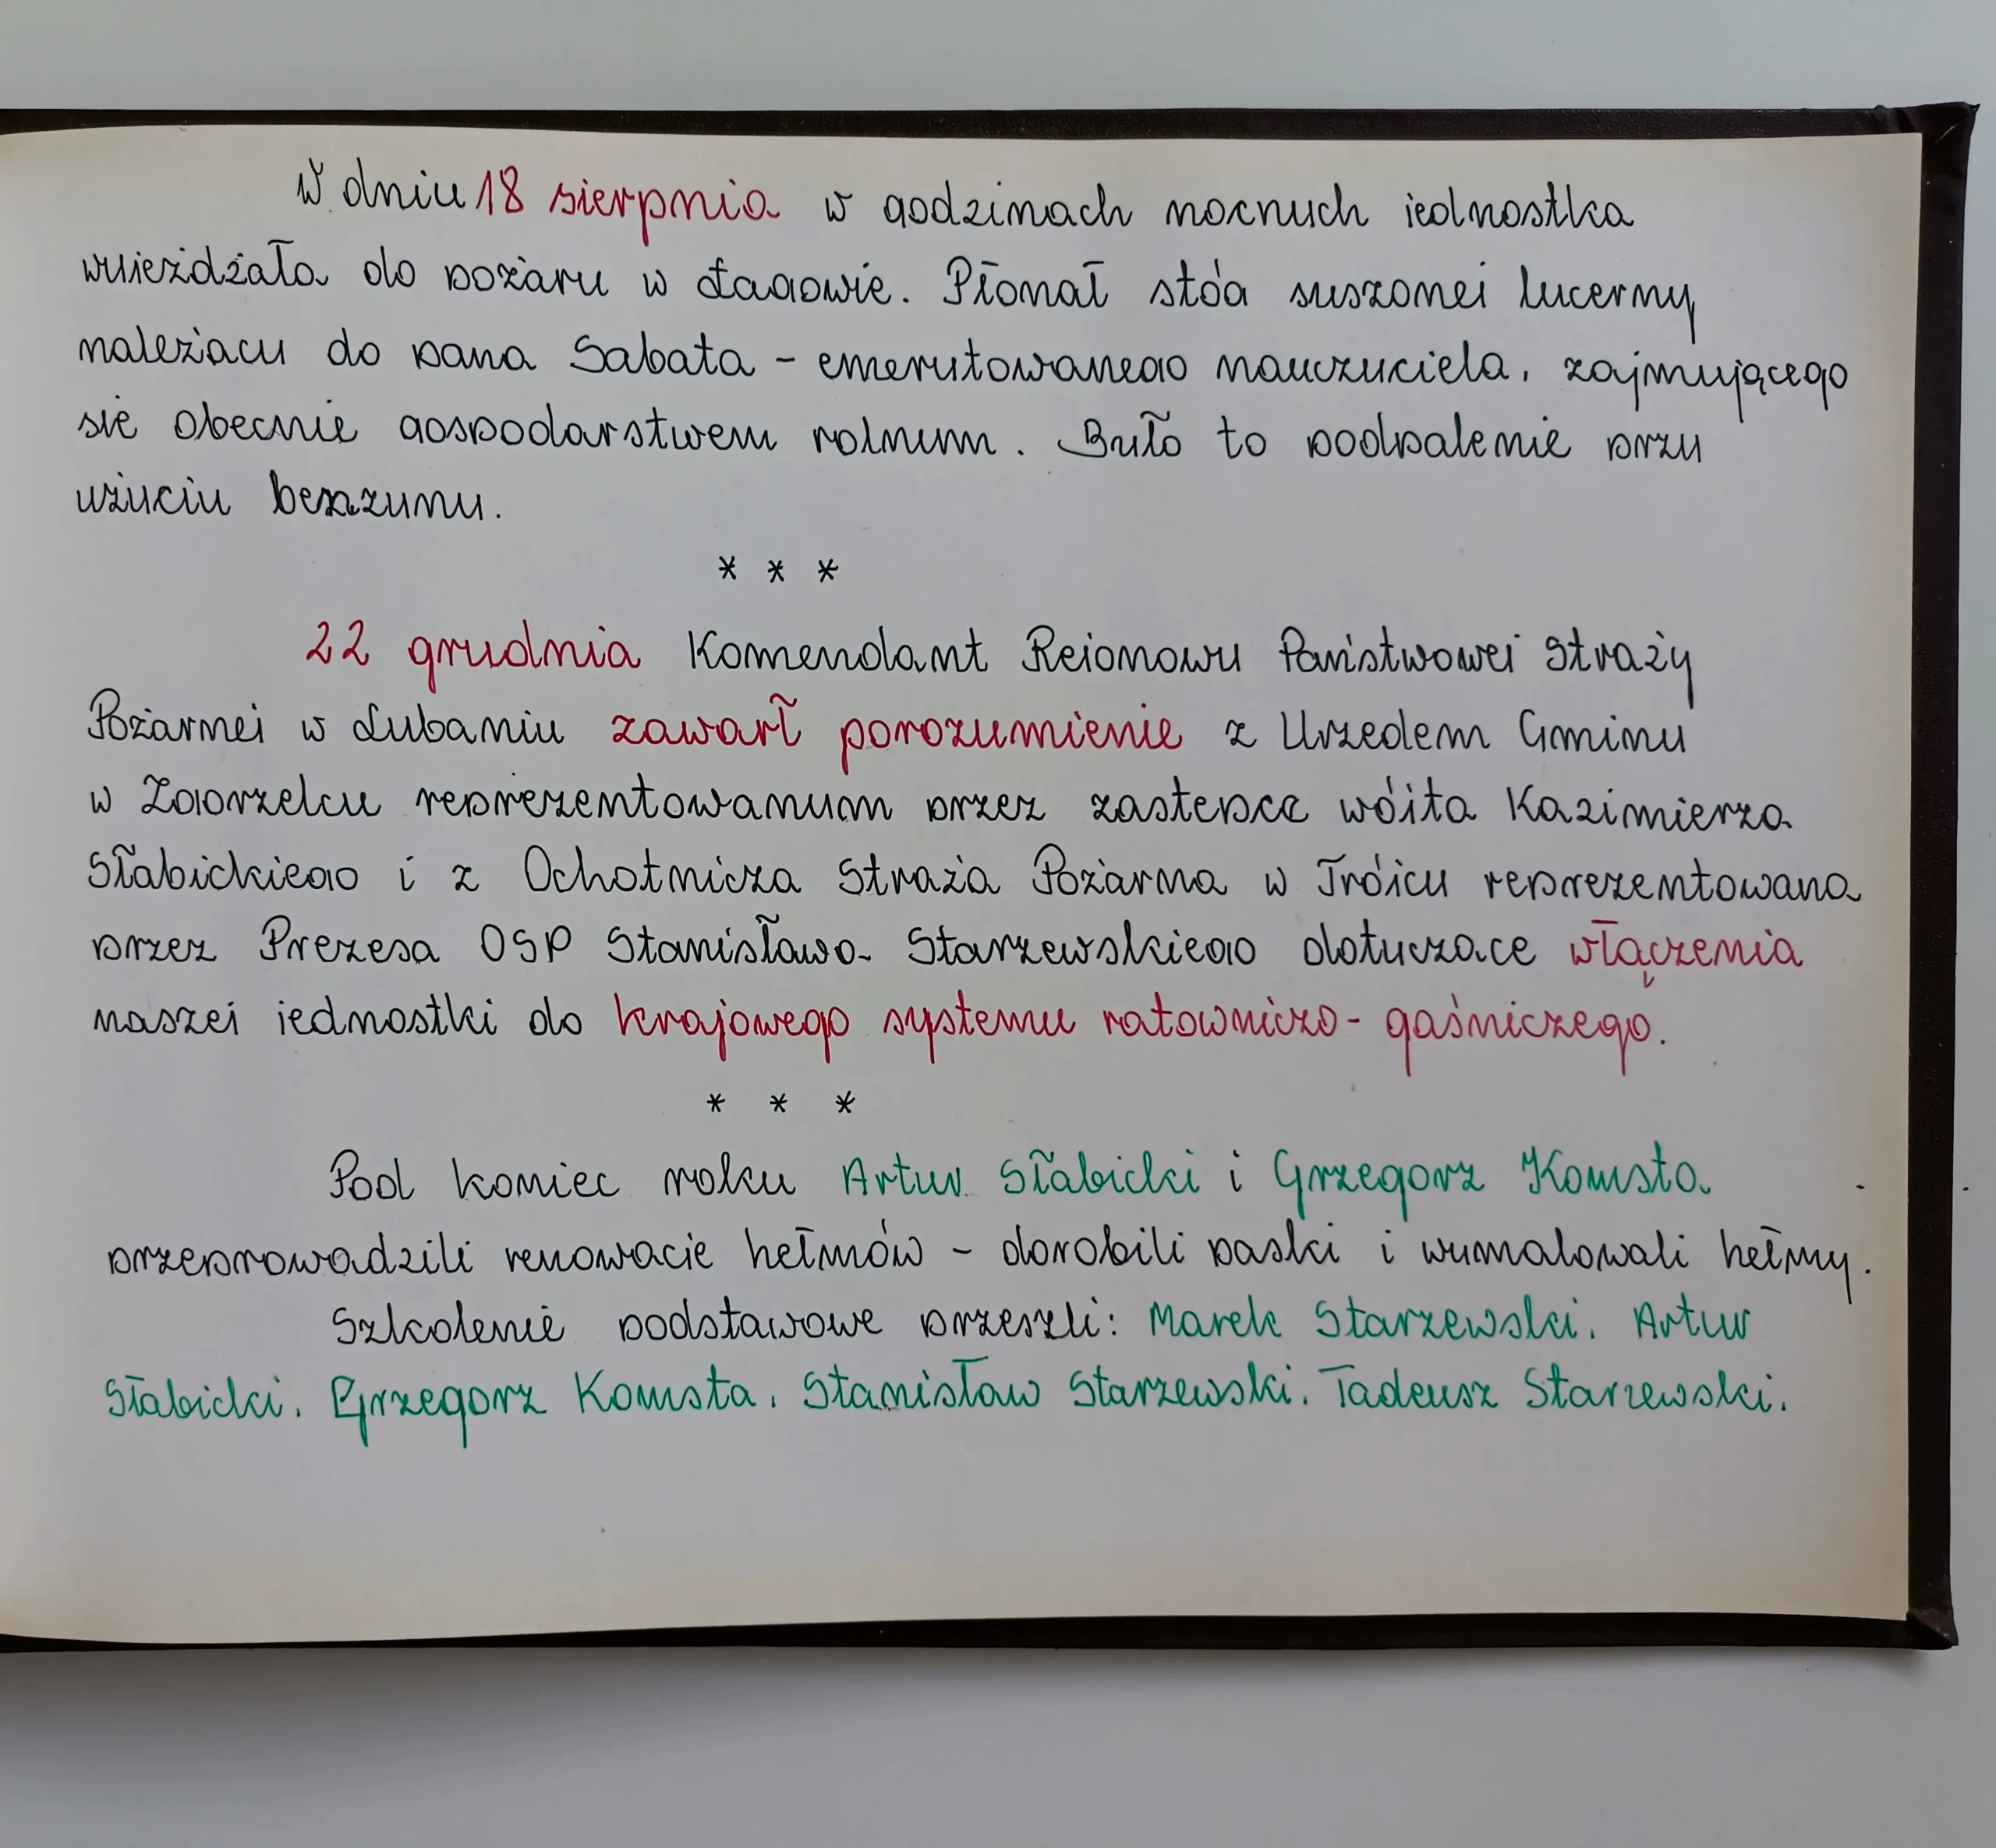 W dniu 18 sierpnia w godzinach nocnych jednostka
wyjeżdżała do pożaru w Łagowie. Płonął stóg suszonej lucerny
należący do pana Sabata - emerytowanego nauczyciela, zajmującego
się obecnie gospodarstwem rolnym. Było to podpalenie przy
użyciu benzyny.
* * *
22 grudnia Komendant Rejonowy Państwowej Straży
Pożarnej w Lubaniu zawarł porozumienie z Urzędem Gminy
w Zgorzelcu reprezentowanym przez zastępcę wójta Kazimierza
Słabickiego i z Ochotniczą Strażą Pożarną w Trójcy reprezentowaną
przez Prezesa OSP Stanisława Starzewskiego dotyczące włączenia
naszej jednostki do krajowego systemu ratowniczo-gaśniczego.
* * *
Pod koniec roku Artur Słabicki i Grzegorz Komsta
przeprowadzili renowację hełmów - dorobili paski i wymalowali hełmy.
Szkolenie podstawowe przeszli: Marek Starzewski, Artur
Słabicki, Grzegorz Komsta, Stanisław Starzewski, Tadeusz Starzewski.